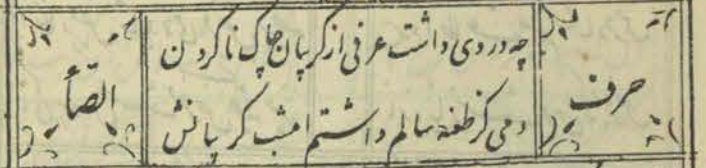 حرف
چه در روی داشت عرفی از گریبان چاک ناکردن
دمی کز طعنه سالم داشتم امشب گریبانش
الصاٌ